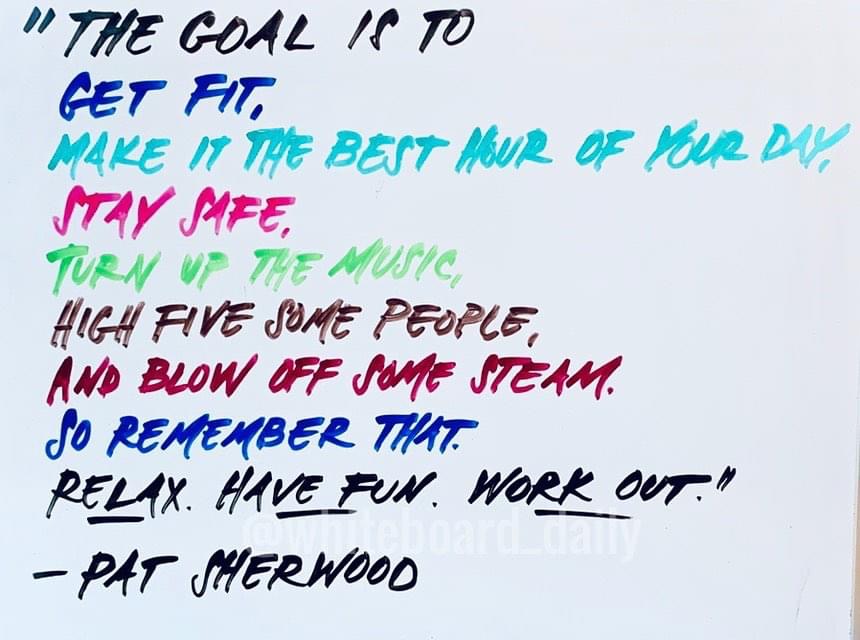 "THE GOAL IS TO
GET FIT,
MAKE IT THE BEST HOUR OF YOUR DAY,
STAY SAFE,
TURN UP THE MUSIC,
HIGH FIVE SOME PEOPLE,
AND BLOW OFF SOME STEAM.
SO REMEMBER THAT.
RELAX. HAVE FUN. WORK OUT."
@whiteboard_daily
- PAT SHERWOOD